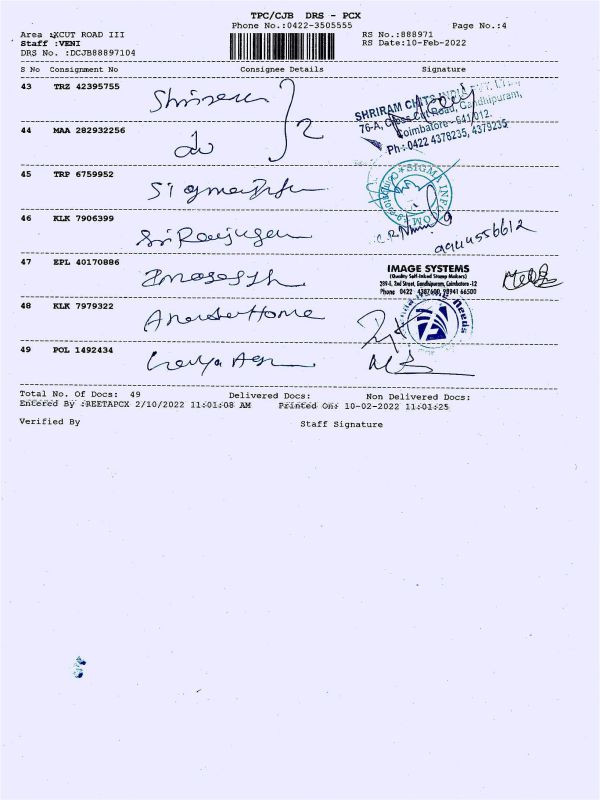 TPC/CJB DRS - PCX
Phone No.:0422-3505555 Page No.:4
Area :XCUT ROAD III RS No.:888971
Staff :VENI RS Date:10-Feb-2022
DRS No. :DCJB88897104
S No Consignment No Consignee Details Signature
43 TRZ 42395755
SHRIRAM CHITS
76-A, Cross Cut Road, Gandhipuram,
Coimbatore - 641 012.
Ph : 0422 4378235, 4379235
44 MAA 282932256 do 2
45 TRP 6759952
SIGMA INFO
46 KLK 7906399
9944556612
47 EPL 40170886
IMAGE SYSTEMS
(Quality Self-Inked Stamp Makers)
Phone 0422
48 KLK 7979322 Home
Needs
49 POL 1492434
Total No. Of Docs: 49 Delivered Docs: Non Delivered Docs:
Entered By :REETAPCX 2/10/2022 11:01:08 AM Printed On: 10-02-2022 11:01:25
Verified By Staff Signature